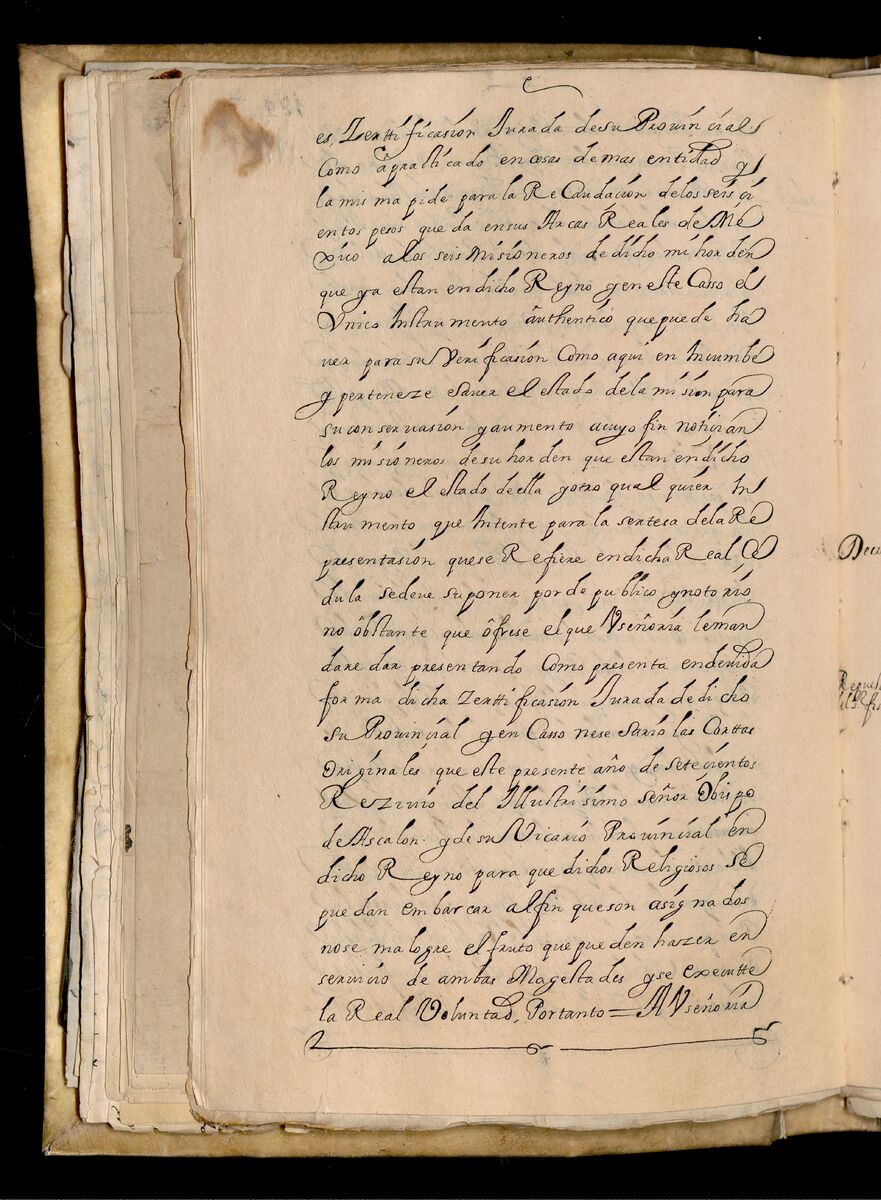 es, Zerttificasion Jurada desu Prouincial
Como â practicado en cosas demas entidad y
la misma pide para la ReCaudacion delos seisci
entos pesos que da ensus Arcas Reales de Me
xico alos seis Misioneros dedicho mi horden
que ya estan endicho Reyno y en este Casso el
Vnico Instrumento âuthentico que puede ha
uer para su Verificasion Como aqui en Incumbe
y perteneze sauer el estado dela mision para
su conseruasion y aumento acuyo fin notician
los misioneros desu horden que estan endicho
Reyno el estado deella y otro qual quier In
strumento que Intente para la sertesa dela Re
presentasion quese Refiere endicha Real Ce
dula sedeue suponer por de publico y notorio
no ôbstante que ôfrese el que Vseñoria leman
dare dar presentando Como presenta endeuida
forma dicha Zerttificasion Jurada dedicho
su Prouincial y en Casso nesesario las Carttas
Originales que este presente año de setecientos
Rezivio del Illustrisimo señor Obispo
de Ascalon y desu Vicario Prouincial en
dicho Reyno para que dichos Religiosos se
puedan embarcar alfin queson asignados
nose malogre el fruto que pueden hazer en
seruicio de ambas Magestades yse executte
la Real Voluntad, Portanto = A Vseñoria